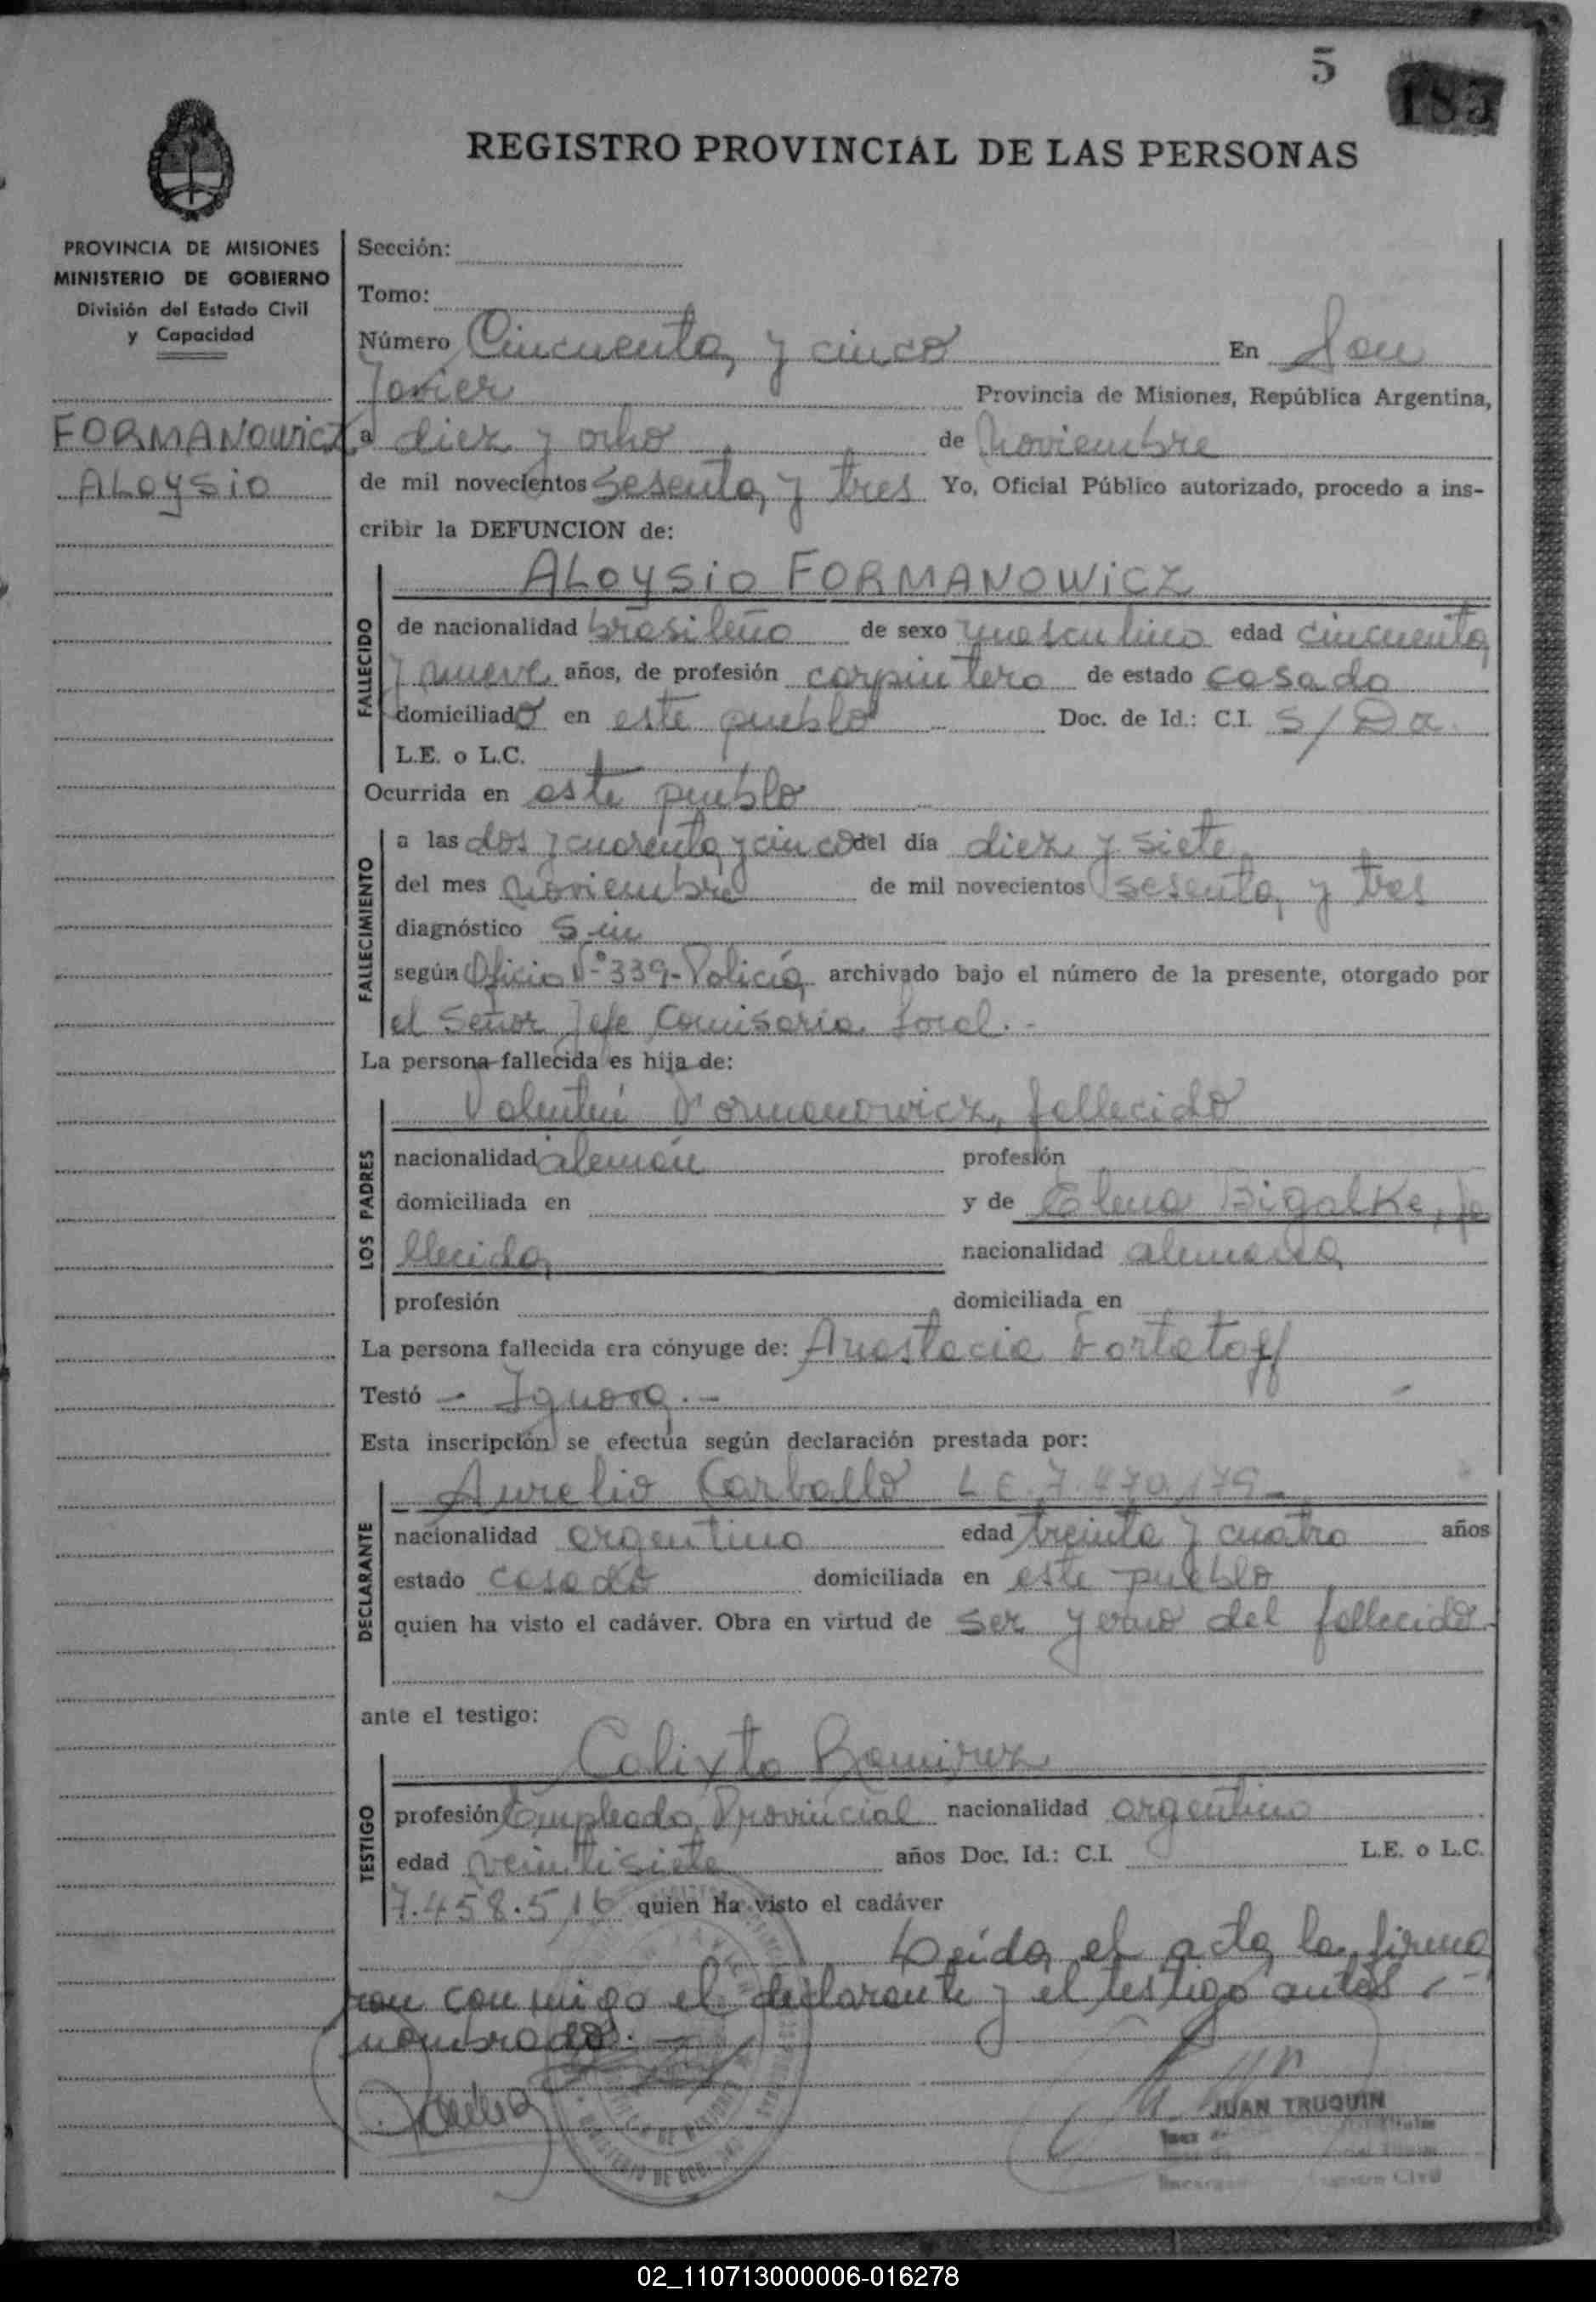 5
185
REGISTRO PROVINCIAL DE LAS PERSONAS
PROVINCIA DE MISIONES
MINISTERIO DE GOBIERNO
División del Estado Civil
y Capacidad
FORMANOWICZ
ALOYSIO
Sección:
Tomo:
Número Cincuenta y cinco En San
Javier Provincia de Misiones, República Argentina,
a diez y ocho de Noviembre
de mil novecientos Sesenta y tres Yo, Oficial Público autorizado, procedo a ins-
cribir la DEFUNCION de:
ALOYSIO FORMANOWICZ
FALLECIDO
de nacionalidad brasileño de sexo masculino edad cincuenta
y nueve años, de profesión carpintero de estado casado
domiciliado en este pueblo Doc. de Id.: C.I. S/
L.E. o L.C.
Ocurrida en este pueblo
FALLECIMIENTO
a las dos y cuarenta y cinco del día diez y siete
del mes noviembre de mil novecientos sesenta y tres
diagnóstico Sin
según Oficio Nº 339-Policía archivado bajo el número de la presente, otorgado por
el Señor Jefe Comisaría Local.-
La persona fallecida es hija de:
LOS PADRES
Valentín Formanowicz, fallecido
nacionalidad alemán profesión
domiciliada en y de Elena Bigalke, fa
llecida nacionalidad alemana
profesión domiciliada en
La persona fallecida era cónyuge de: Anastacia
Testó - Ignora.-
Esta inscripción se efectúa según declaración prestada por:
DECLARANTE
Aurelio Carballo L.E. 7.470.179-
nacionalidad argentino edad treinta y cuatro años
estado casado domiciliada en este pueblo
quien ha visto el cadáver. Obra en virtud de ser yerno del fallecido.
ante el testigo:
TESTIGO
Calixto Ramirez
profesión Empleado Provincial nacionalidad argentino
edad veintisiete años Doc. Id.: C.I. L.E. o L.C.
7.458.516 quien ha visto el cadáver
Leída el acta la firma
ron conmigo el declarante y el testigo antes
nombrados.-
JUAN TRUQUIN
Civil
02_110713000006-016278